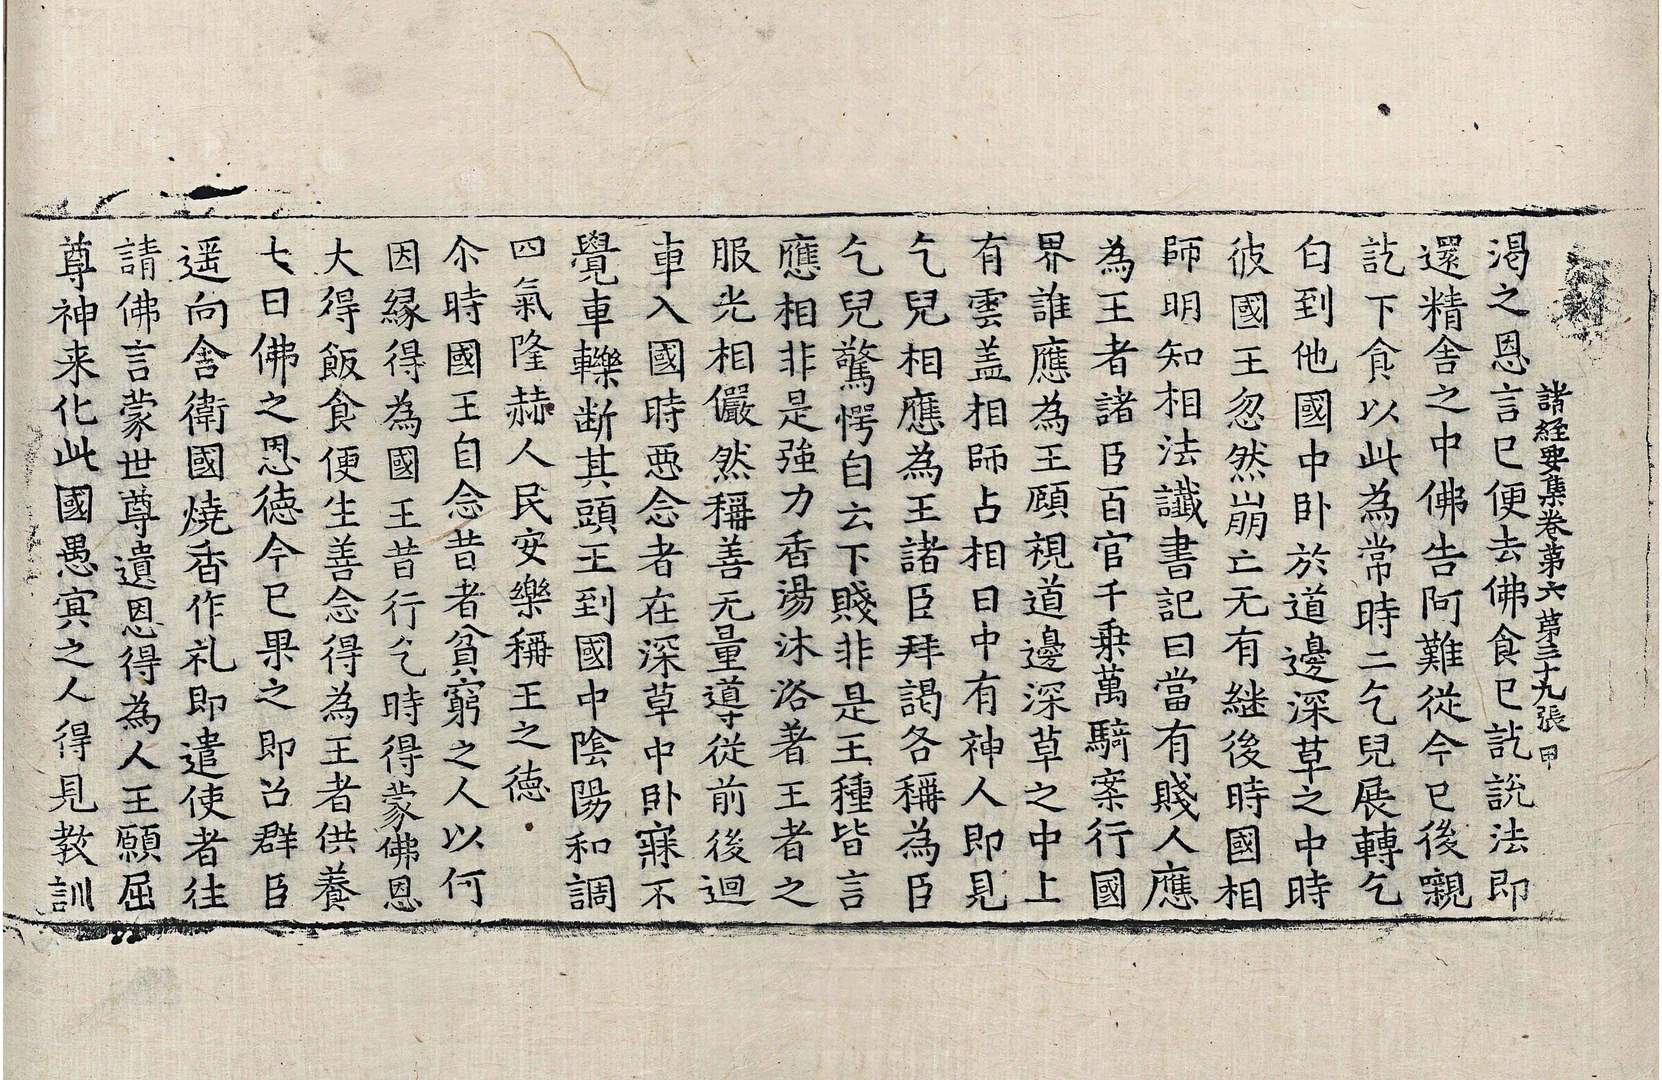 諸經要集卷第六 第三十九張 甲
渴之恩言已便去佛食已訖說法即
還精舍之中佛告阿難從今已後嚫
訖下食以此為常時二乞兒展轉乞
匃到他國中卧於道邊深草之中時
彼國王忽然崩亡无有継後時國相
師明知相法讖書記曰當有賤人應
為王者諸臣百官千乗萬騎案行國
界誰應為王顧視道邊深草之中上
有雲盖相師占相曰中有神人即見
乞兒相應為王諸臣拜謁各稱為臣
乞兒驚愕自云下賤非是王種皆言
應相非是強力香湯沐浴著王者之
服光相儼然稱善无量導從前後迴
車入國時惡念者在深草中卧寐不
覺車轢断其頭王到國中陰陽和調
四氣隆赫人民安樂稱王之德
尒時國王自念昔者貧窮之人以何
因縁得為國王昔行乞時得蒙佛恩
大得飯食便生善念得為王者供養
七日佛之恩德今已果之即召群臣
遥向舍衛國燒香作礼即遣使者往
請佛言蒙世尊遺恩得為人王願屈
尊神来化此國愚冥之人得見教訓